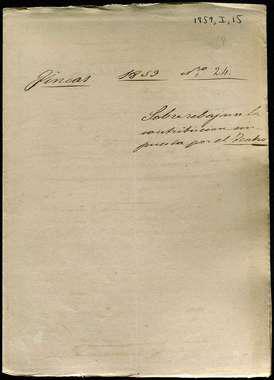 1859, I, 15
Fincas 1859 Nº 24.
Sobre rebajar la
contribucion im-
puesta por el Teatro